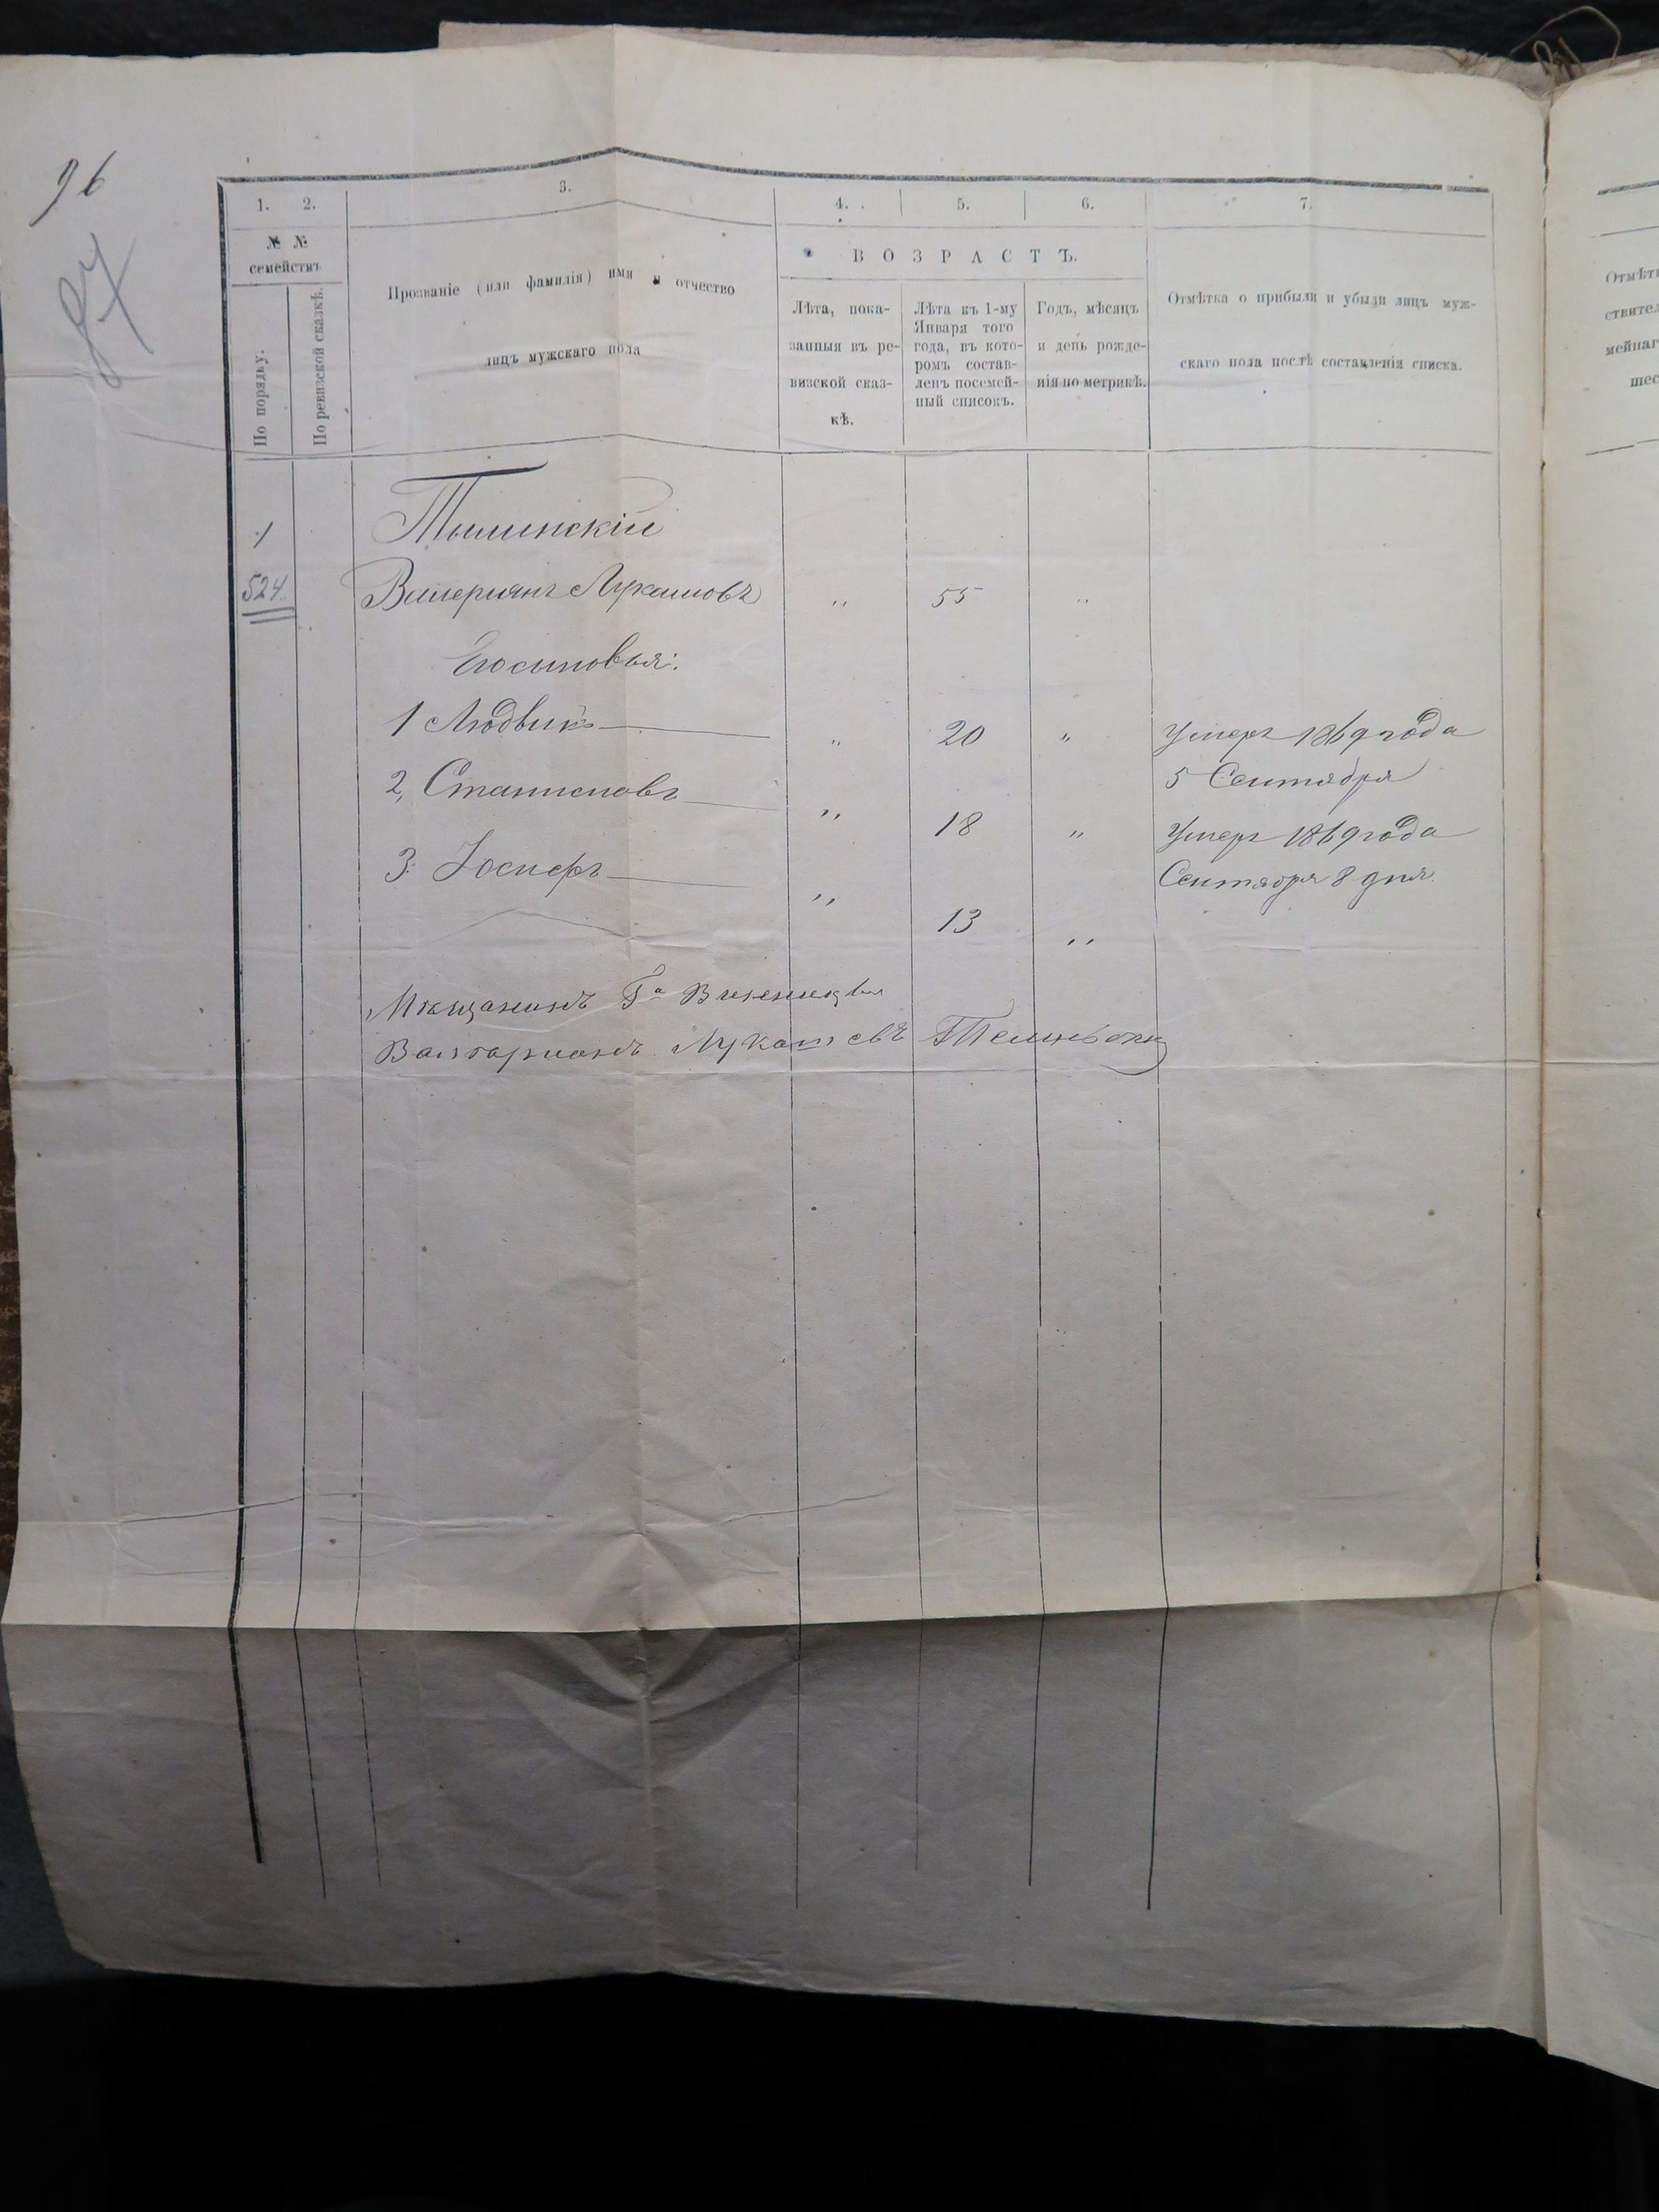 96
1. 2. 3. 4. 5. 6. 7.
№ № семействъ
По порядку.
По ревизской сказкѣ.
Прозваніе (или фамилія) имя и отчество
лицъ мужскаго пола
ВОЗРАСТЪ.
Лѣта, пока-
занныя въ ре-
визской сказ-
кѣ.
Лѣта къ 1-му
Января того
года, въ кото-
ромъ состав-
ленъ посемей-
ный списокъ.
Годъ, мѣсяцъ
и день рожде-
нія по метрикѣ.
Отмѣтка о прибыли и убыли лицъ муж-
скаго пола послѣ составленія списка.
1 Тылинскій
524. Валеріянъ Лукашовъ " 55 "
Его сыновья:
1 Людвикъ " 20 " Умеръ 1869 года
5 Сентября
2, Станиславъ " 18 " Умеръ 1869 года
Сентября 8 дня.
3. Іосифъ " 13 "
Мѣщанинъ Га
Лукашевъ
Отмѣтк
ствител
мейнаг
шес